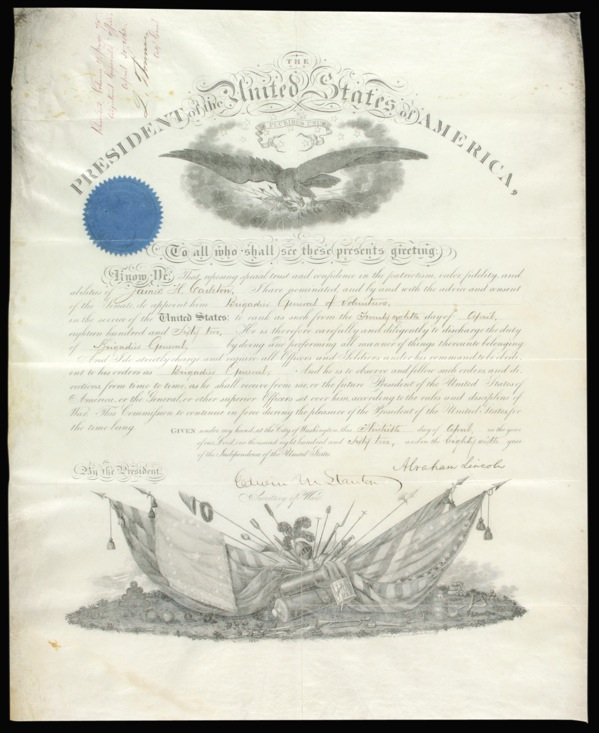 L. Thomas
THE
PRESIDENT of the United States of AMERICA,
E PLURIBUS UNUM
To all who shall see these presents greeting:
Know Ye, That reposing special trust and confidence in the patriotism, valor, fidelity, and
abilities of James H. Carleton, I have nominated, and by and with the advice and consent
of the Senate, do appoint him Brigadier General of Volunteers,
in the service of the United States: to rank as such from the Twenty eighth day of April,
eighteen hundred and Sixty two. He is therefore carefully and diligently to discharge the duty
of Brigadier General, by doing and performing all manner of things thereunto belonging.
And I do strictly charge and require all Officers and Soldiers under his command to be obedi-
ent to his orders as Brigadier General. And he is to observe and follow such orders, and di-
rections from time to time, as he shall receive from me, or the future President of the United States of
America, or the General, or other superior Officers set over him, according to the rules and discipline of
War. This Commission to continue in force during the pleasure of the President of the United States for
the time being.
GIVEN under my hand, at the City of Washington, this Thirtieth day of April, in the year
of our Lord, one thousand eight hundred and Sixty two, and in the Eighty sixth year
of the Independence of the United States.
By the President,
Abraham Lincoln
Edwin M Stanton
Secretary of War.